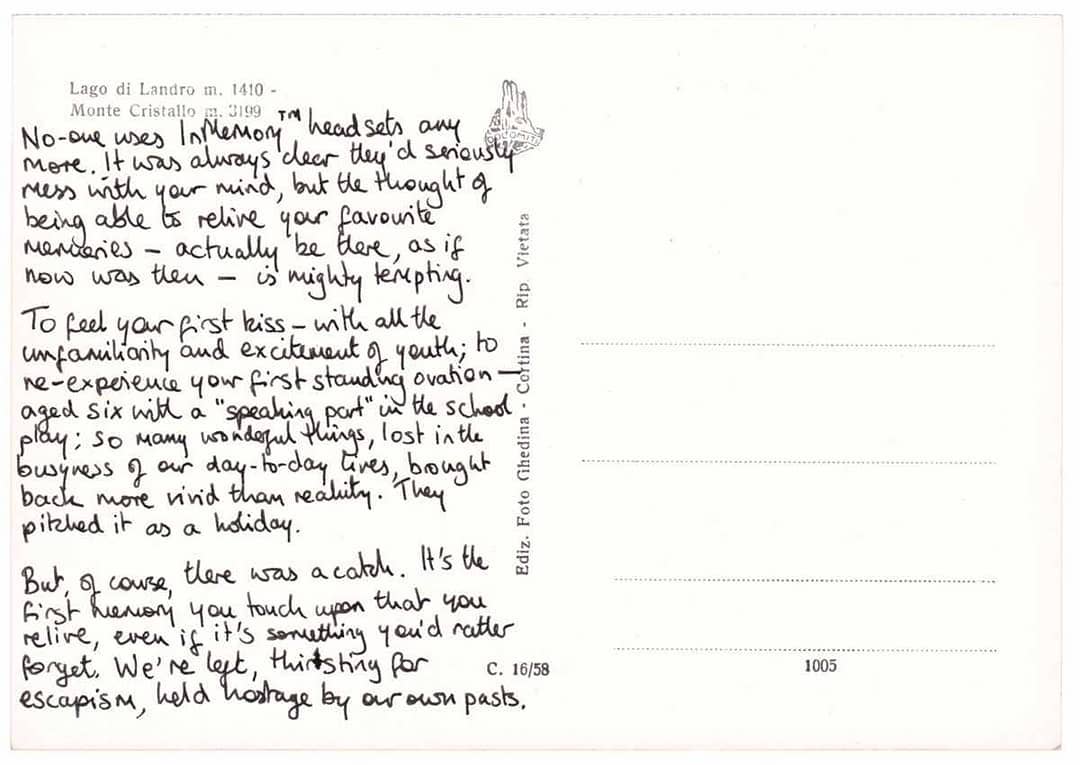 Lago di Landro m. 1410 -
Monte Cristallo m. 3199
No-one uses InMemory™ headsets any
more. It was always clear they'd seriously
mess with your mind, but the thought of
being able to relive your favourite
memories – actually be there, as if
now was then – is mighty tempting.
To feel your first kiss – with all the
unfamiliarity and excitement of youth; to
re-experience your first standing ovation –
aged six with a "speaking part" in the school
play; so many wonderful things, lost in the
busyness of our day-to-day lives, brought
back more vivid than reality. They
pitched it as a holiday.
But, of course, there was a catch. It's the
first memory you touch upon that you
relive, even if it's something you'd rather
forget. We're left, thirsting for
escapism, held hostage by our own pasts.
DOLOMITI
Ediz. Foto Ghedina - Cortina - Rip. Vietata
C. 16/58
1005